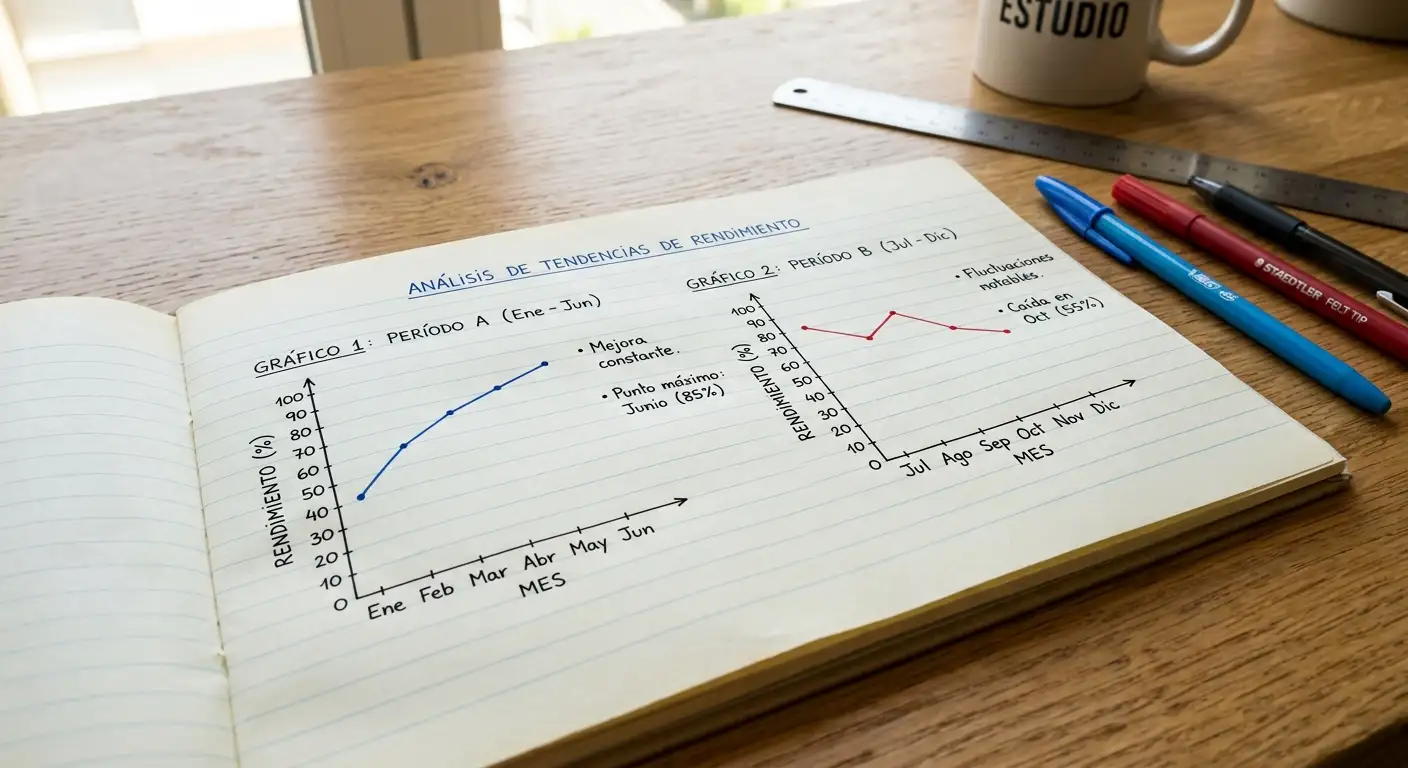 ESTUDIO
ANÁLISIS DE TENDENCIAS DE RENDIMIENTO
GRÁFICO 1: PERÍODO A (Ene - Jun)
• Mejora
constante.
• Punto máximo:
Junio (85%)
RENDIMIENTO (%)
100
90
80
70
60
50
40
30
20
10
0
Ene Feb Mar Abr May Jun
MES
GRÁFICO 2: PERÍODO B (Jul - Dic)
• Fluctuaciones
notables.
• Caída en
Oct (55%)
RENDIMIENTO (%)
100
90
80
70
60
50
40
30
20
10
0
Jul Ago Sep Oct Nov Dic
MES
STAEDTLER FELT TIP